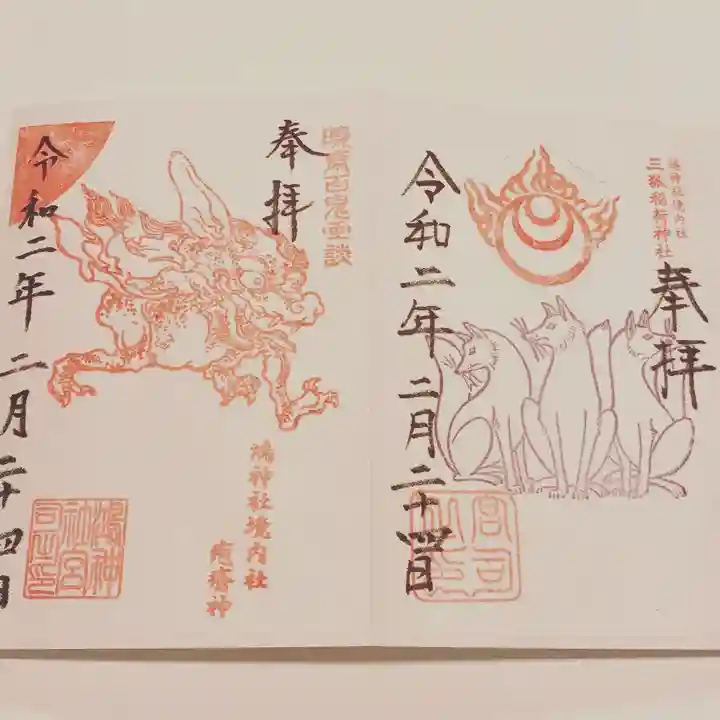 鴻神社境内社
三狐稲荷神社
奉拝
令和二年二月二十四日
暁斎百鬼画談
奉拝
鴻神社境内社
疱瘡神
鴻神
社宮
司之印
令和二年 二月二十四日